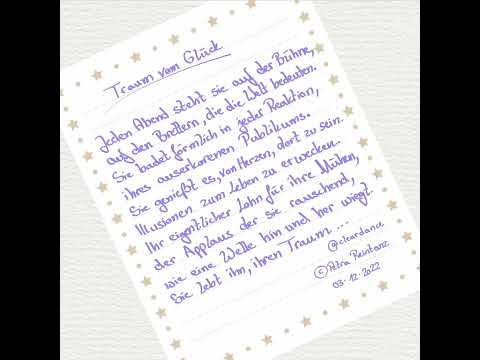 Traum vom Glück
Jeden Abend steht sie auf der Bühne,
auf den Brettern, die die Welt bedeuten.
Sie badet förmlich in jeder Reaktion,
ihres auserkorenen Publikums.
Sie genießt es, von Herzen, dort zu sein.
Illusionen zum Leben zu erwecken.
Ihr eigentlicher Lohn für ihre Mühen,
der Applaus der sie rauschend,
wie eine Welle hin und her wiegt.
Sie lebt ihn, ihren Traum ...
@cleardance
© Petra Reintanz
03.12.2022